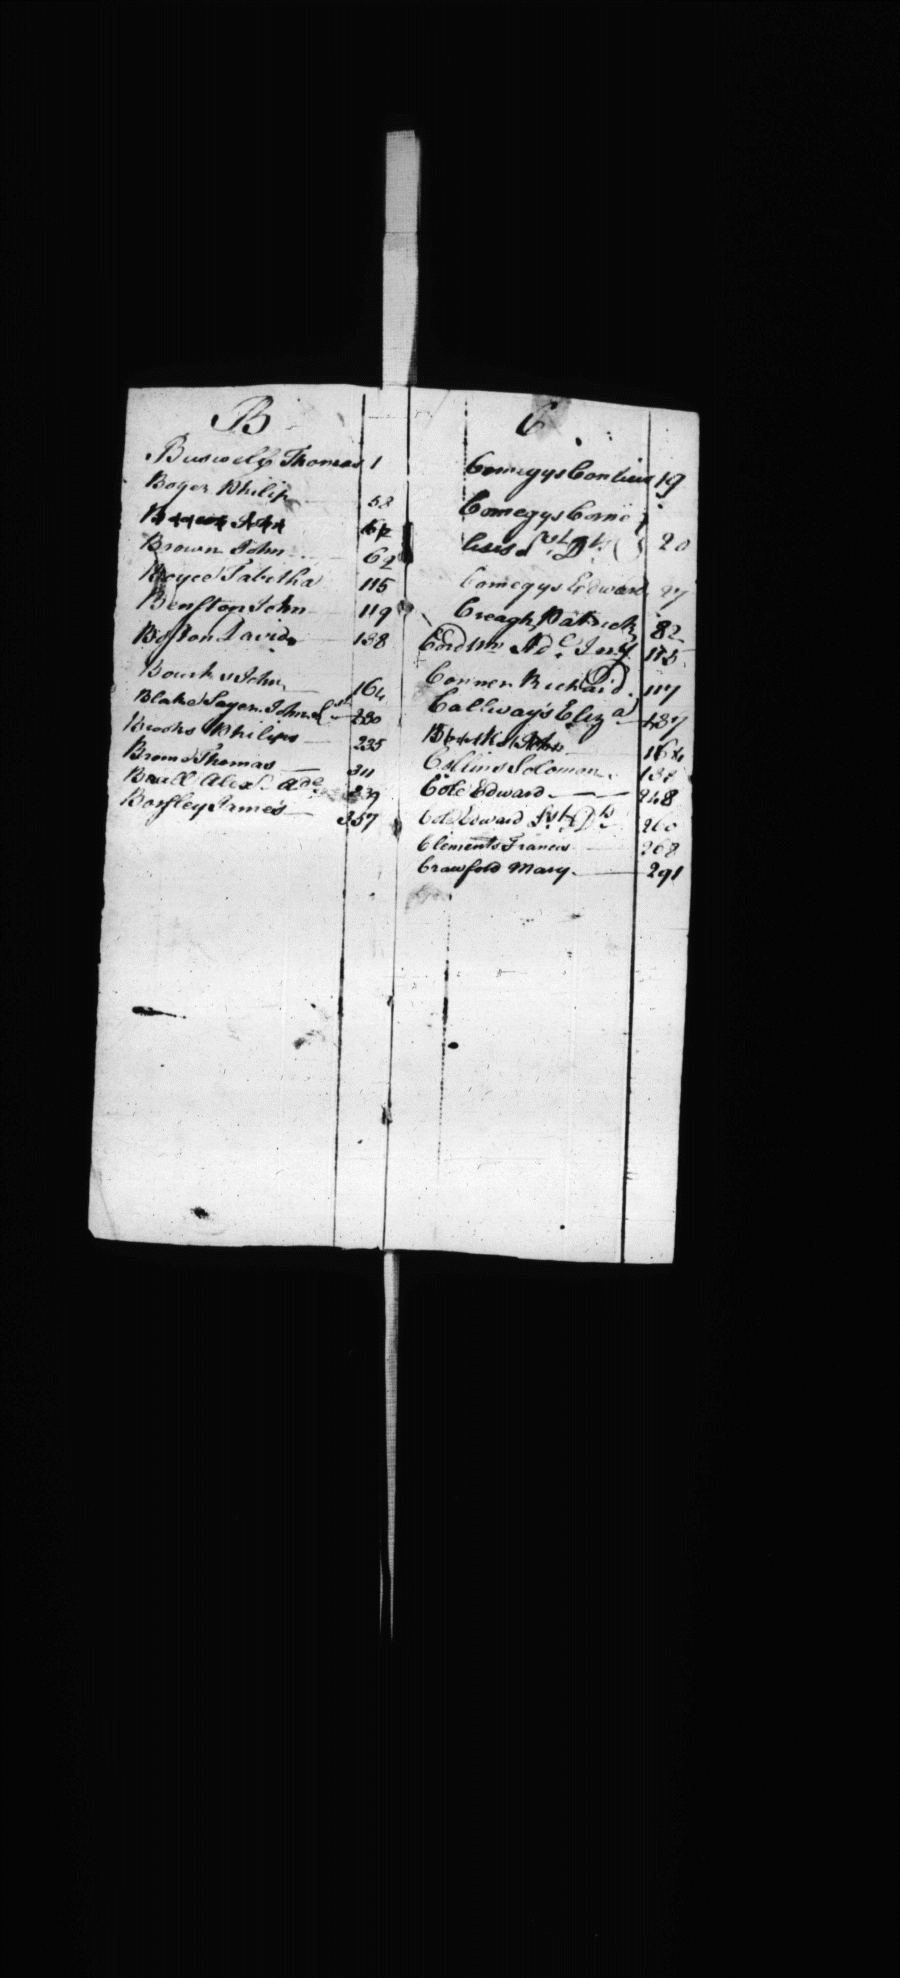 B
Buswell Thomas 1
Boyer Philip 52
62
Brown John 62
Boyce Tabitha 115
Benston John 119
Boston David 138
Bourke John 164
Blake Sayer John 230
Brooks Philips 235
Brome Thomas 311
Beall Alexr. Ade. 339
Bosfley James 357
C
Comegys 19
Comegys Corne
lius 20
Comegys Edward 27
Creagh Patrick 82
Cord Wm Ade Iny 115
Conner Richard 117
Callway's Eliza 137
164
Collins Solomon
Cole Edward 248
Cole Edward 260
Clements Francis 268
Crawford Mary 291